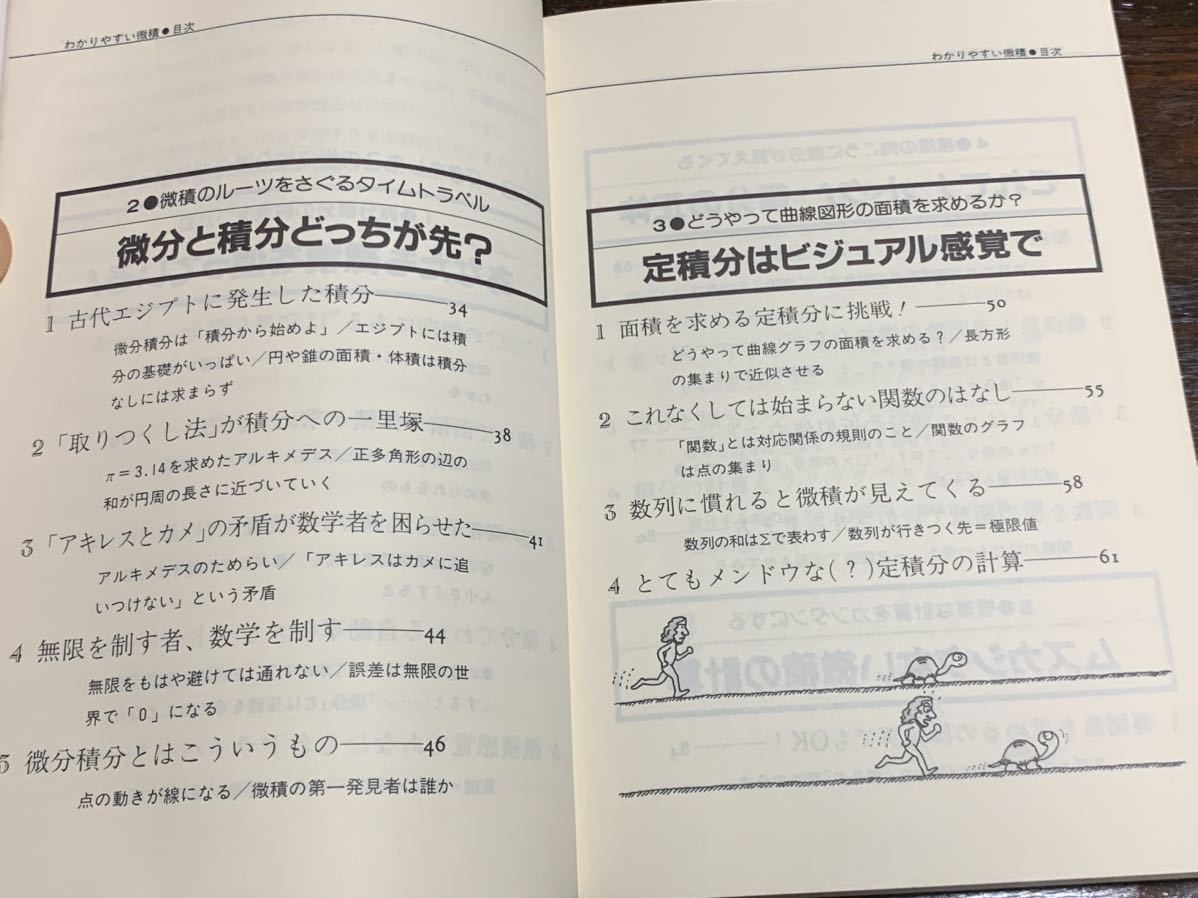 わかりやすい微積●目次
2●微積のルーツをさぐるタイムトラベル
微分と積分どっちが先?
1 古代エジプトに発生した積分――34
微分積分は「積分から始めよ」/エジプトには積
分の基礎がいっぱい/円や錐の面積・体積は積分
なしには求まらず
2 「取りつくし法」が積分への一里塚――38
π=3.14を求めたアルキメデス/正多角形の辺の
和が円周の長さに近づいていく
3 「アキレスとカメ」の矛盾が数学者を困らせた――41
アルキメデスのためらい/「アキレスはカメに追
いつけない」という矛盾
4 無限を制す者、数学を制す――44
無限をもはや避けては通れない/誤差は無限の世
界で「0」になる
5 微分積分とはこういうもの――46
点の動きが線になる/微積の第一発見者は誰か
わかりやすい微積●目次
3●どうやって曲線図形の面積を求めるか?
定積分はビジュアル感覚で
1 面積を求める定積分に挑戦!――50
どうやって曲線グラフの面積を求める?/長方形
の集まりで近似させる
2 これなくしては始まらない関数のはなし――55
「関数」とは対応関係の規則のこと/関数のグラフ
は点の集まり
3 数列に慣れると微積が見えてくる――58
数列の和はΣで表わす/数列が行きつく先=極限値
4 とてもメンドウな(?)定積分の計算――61